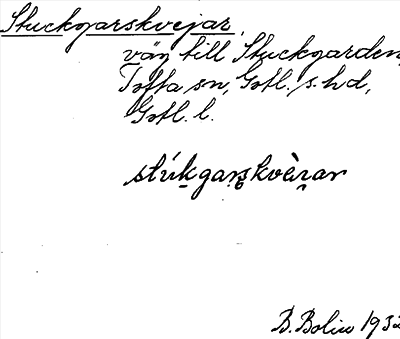 Stuckgarskvejar,
väg till Stuckgarden,
Tofta sn, Gotl. s. hd,
Gotl. l.
stúkgarskvèrar
B. Bolin 1932